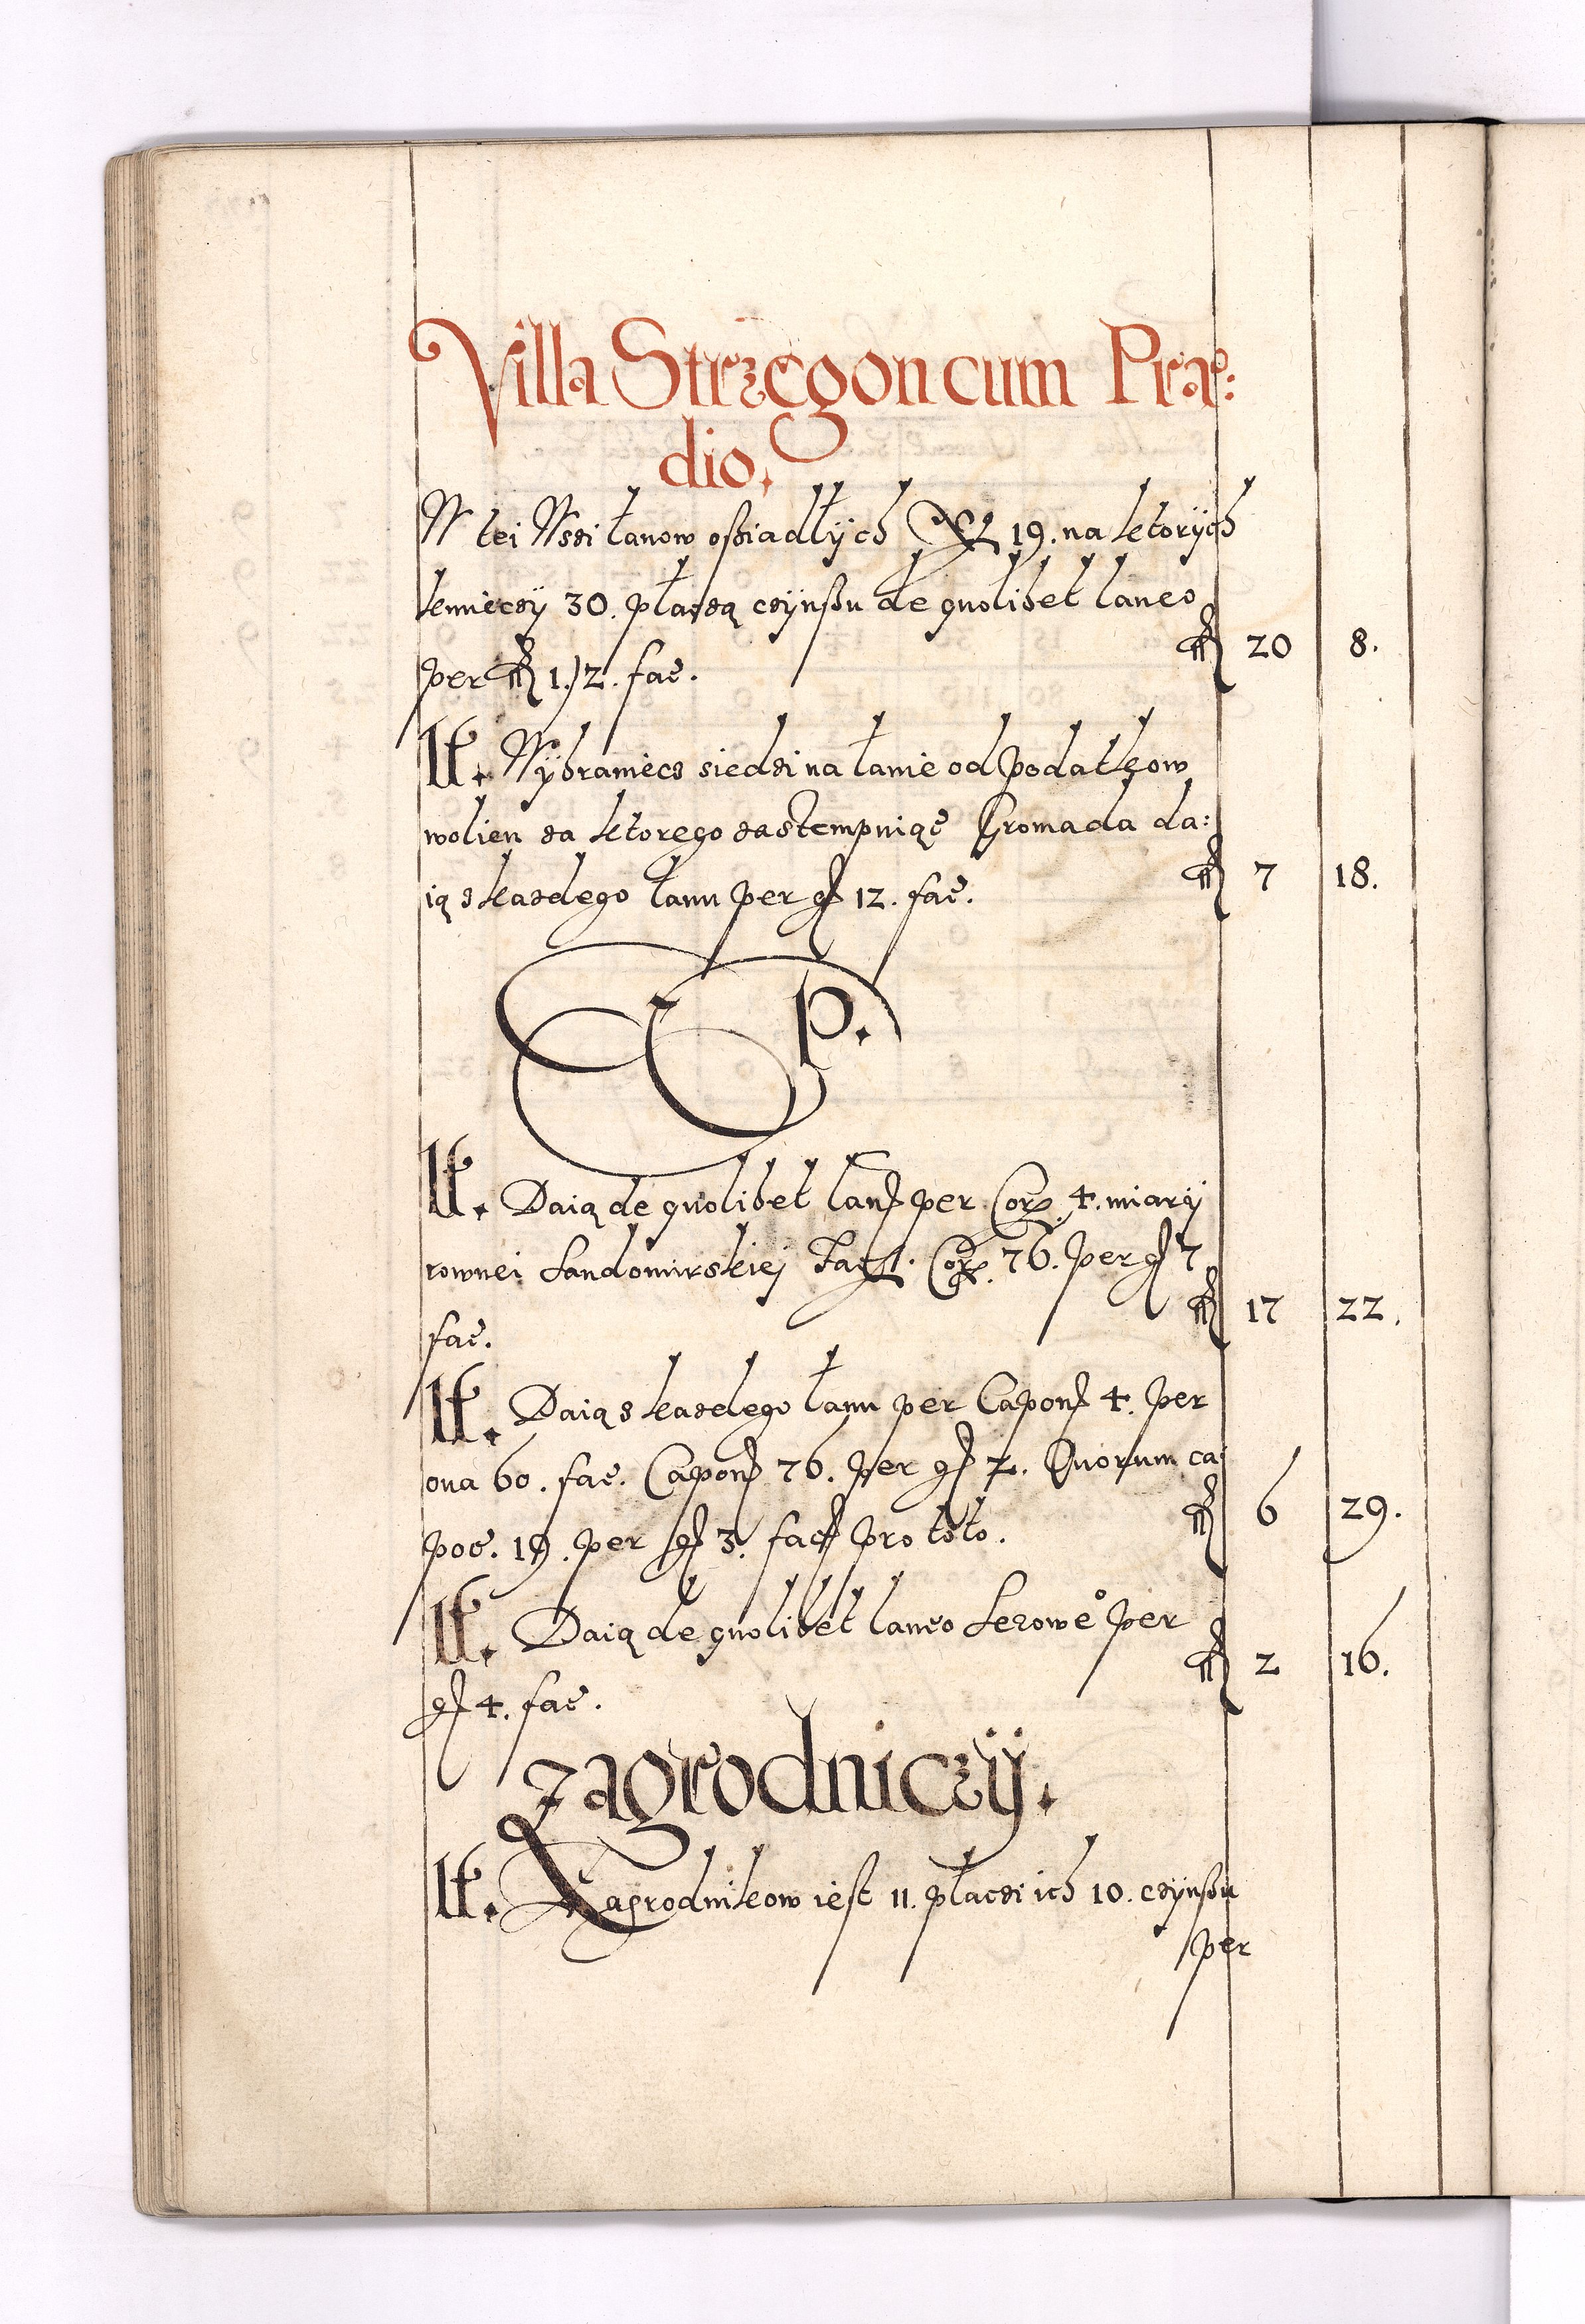 Villa Strzegon cum Præ:
dio.
W tei Wszi łanow oßiadłÿch № 19. na ktorÿch
kmieczÿ 30. płaczą czÿnßu de quolibet laneo
per fl 1./2. fac. fl 20 8.
It. Wÿbraniecz siedzi na łanie od podatkow
wolien za ktorego zastempuiąc Gromada da:
ią z kazdego łanu per gr 12. fac. fl 7 18.
Sp.
It. Daią de quolibet lan per Cor. 4. miarÿ
rownei Sandomirskiej Facit. Cor. 76. per gr 7
fac. fl 17 22.
It. Daią z kazdego łanu per Capon 4. per
oua 60. fac. Capon 76. per gr 2. Quorum ca:
poe. 19. per gr 3. fac pro toto. fl 6 29.
It. Daią de quolibet laneo Serowe° per
gr 4. fac. fl 2 16.
Zagrodniczÿ.
It. Zagrodnikow iest 11. płaczi ich 10. czÿnßu
per